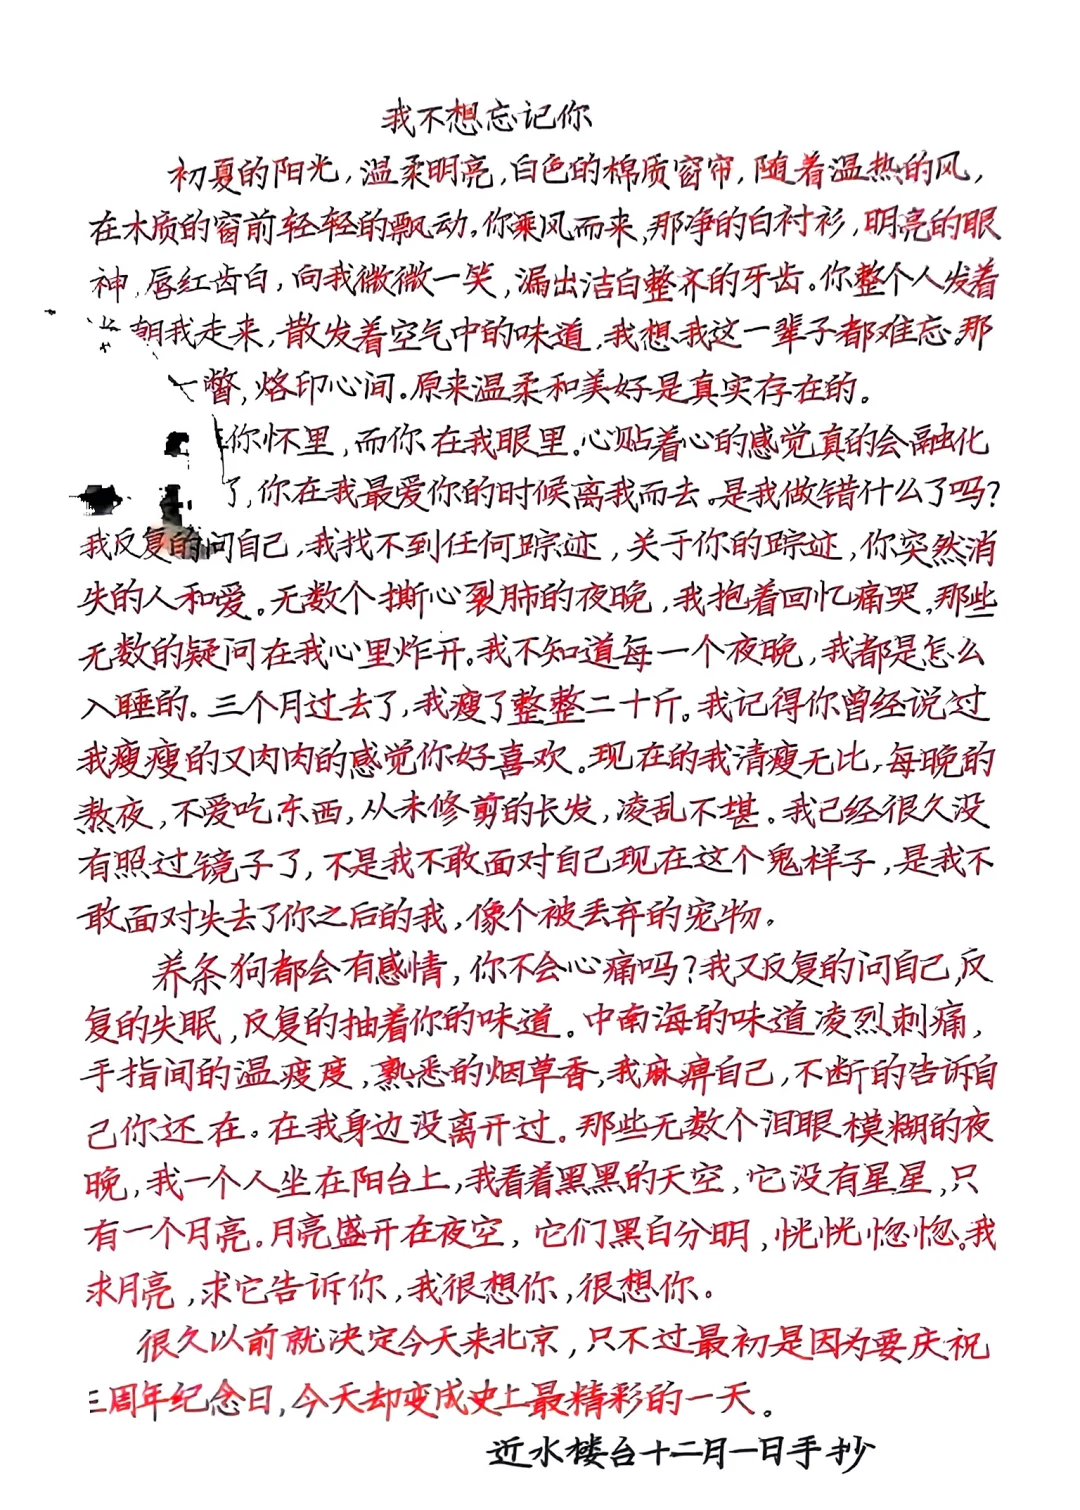 我不想忘记你
初夏的阳光,温柔明亮,白色的棉质窗帘,随着温热的风,
在木质的窗前轻轻的飘动.你乘风而来,那净的白衬衫,明亮的眼
神,唇红齿白,向我微微一笑,漏出洁白整齐的牙齿。你整个人发着
朝我走来,散发着空气中的味道,我想我这一辈子都难忘.那
一瞥,烙印心间.原来温柔和美好是真实存在的。
你怀里,而你在我眼里.心贴着心的感觉真的会融化
了,你在我最爱你的时候离我而去。是我做错什么了吗?
我反复的问自己,我找不到任何踪迹,关于你的踪迹,你突然消
失的人和爱。无数个撕心裂肺的夜晚,我抱着回忆痛哭,那些
无数的疑问在我心里炸开.我不知道每一个夜晚,我都是怎么
入睡的.三个月过去了,我瘦了整整二十斤。我记得你曾经说过
我瘦瘦的又肉肉的感觉你好喜欢。现在的我清瘦无比,每晚的
熬夜,不爱吃东西,从未修剪的长发,凌乱不堪。我已经很久没
有照过镜子了,不是我不敢面对自己现在这个鬼样子,是我不
敢面对失去了你之后的我,像个被丢弃的宠物。
养条狗都会有感情,你不会心痛吗?我又反复的问自己,反
复的失眠,反复的抽着你的味道。中南海的味道凌烈刺痛,
手指间的温度度,熟悉的烟草香,我麻痹自己,不断的告诉自
己你还在。在我身边没离开过。那些无数个泪眼模糊的夜
晚,我一个人坐在阳台上,我看着黑黑的天空,它没有星星,只
有一个月亮.月亮盛开在夜空,它们黑白分明,恍恍惚惚。我
求月亮,求它告诉你,我很想你,很想你。
很久以前就决定今天来北京,只不过最初是因为要庆祝
三周年纪念日,今天却变成史上最精彩的一天。
近水楼台十二月一日手抄